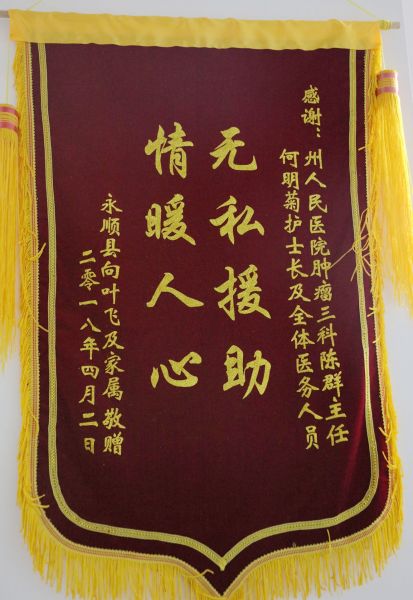 感谢：州人民医院肿瘤三科陈群主任
何明菊护士长及全体医务人员
无私援助
情暖人心
永顺县向叶飞及家属敬赠
二零一八年四月二日